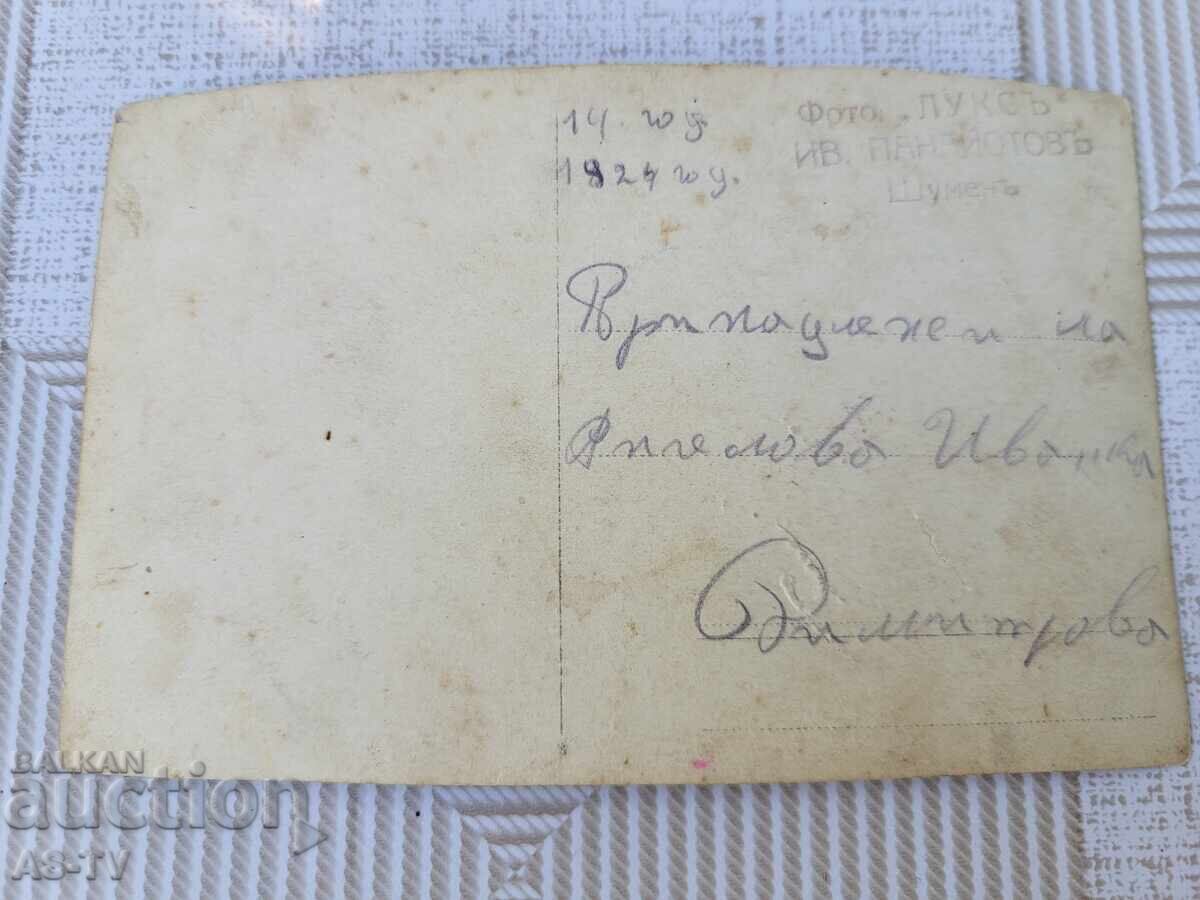 14. год.
1924 год.
Фото. "ЛУКСЪ
ИВ. ПАНАЙОТОВЪ
Шуменъ
Принадлежи на
Ангелова Иванка
Димитрова
BALKAN
auction
AS-TV